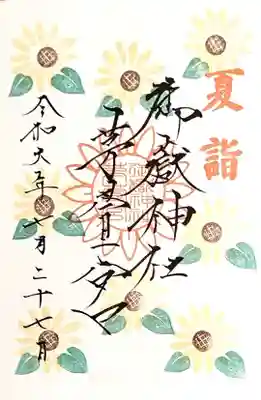 夏詣
御嶽神社
茅萱宮
令和六年七月二十七日